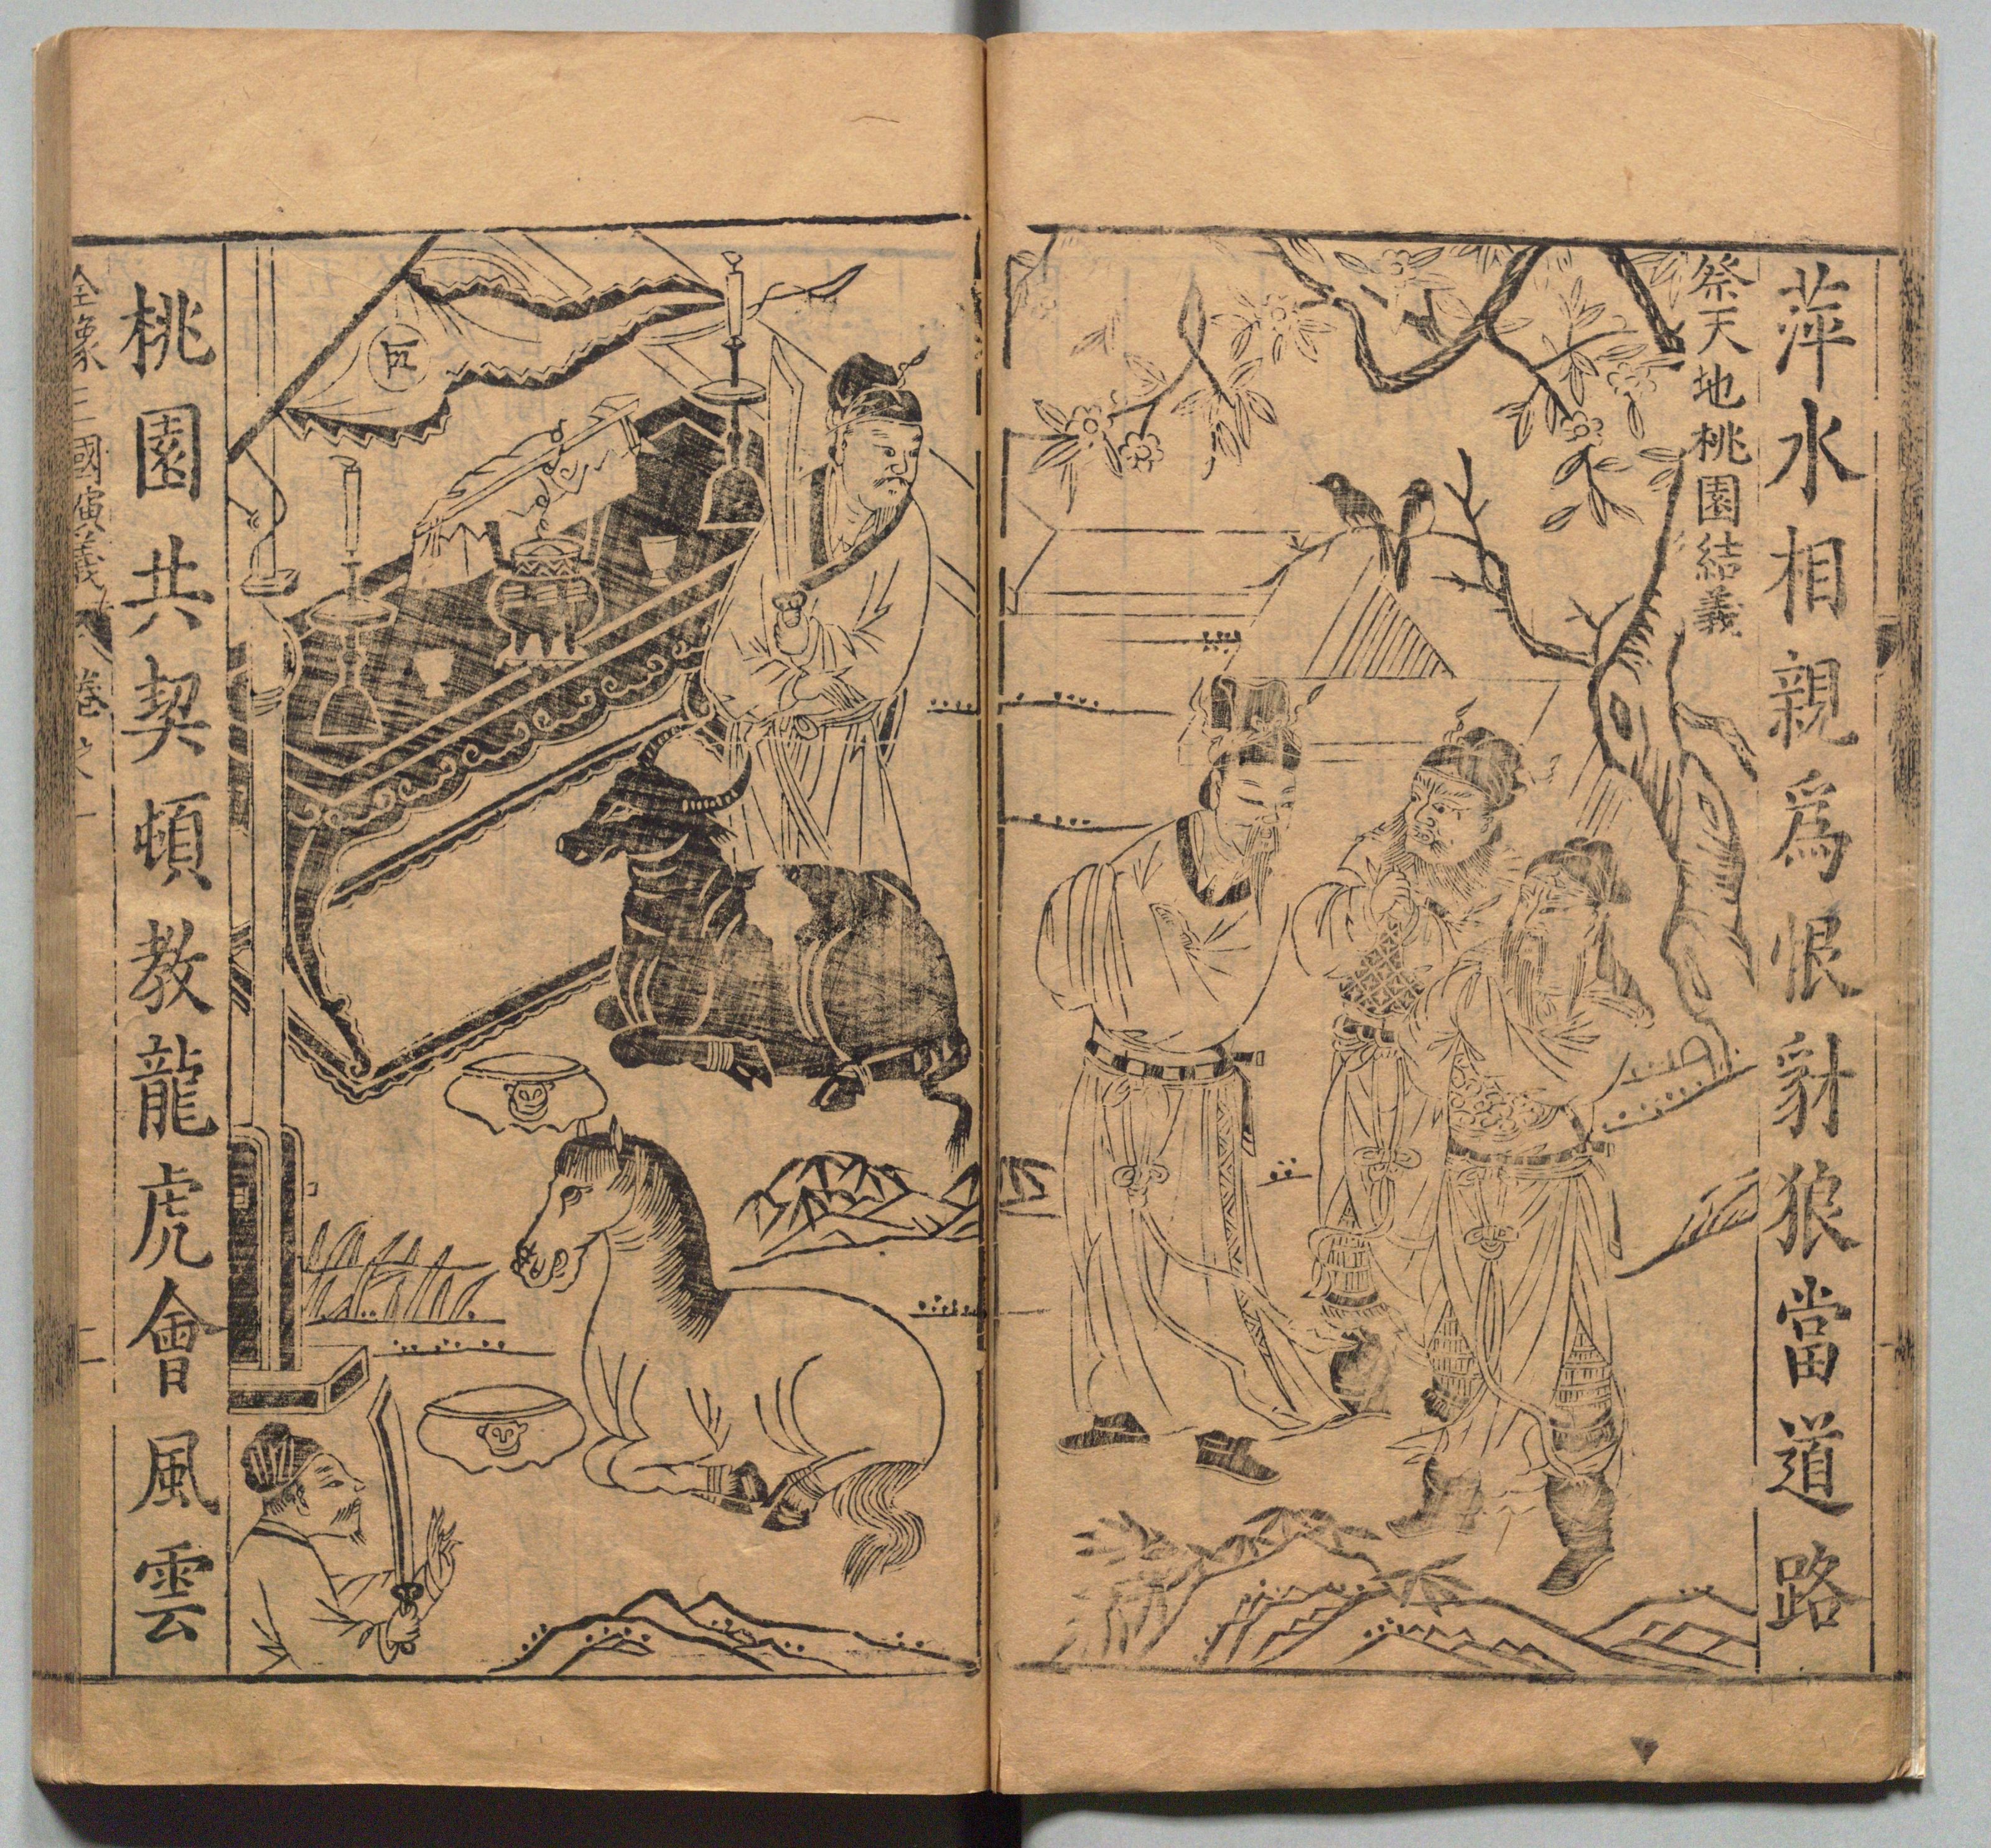 萍水相親爲恨豺狼當道路
祭天地桃園結義
桃園共契頓教龍虎會風雲
全像三國演義
卷之一
二